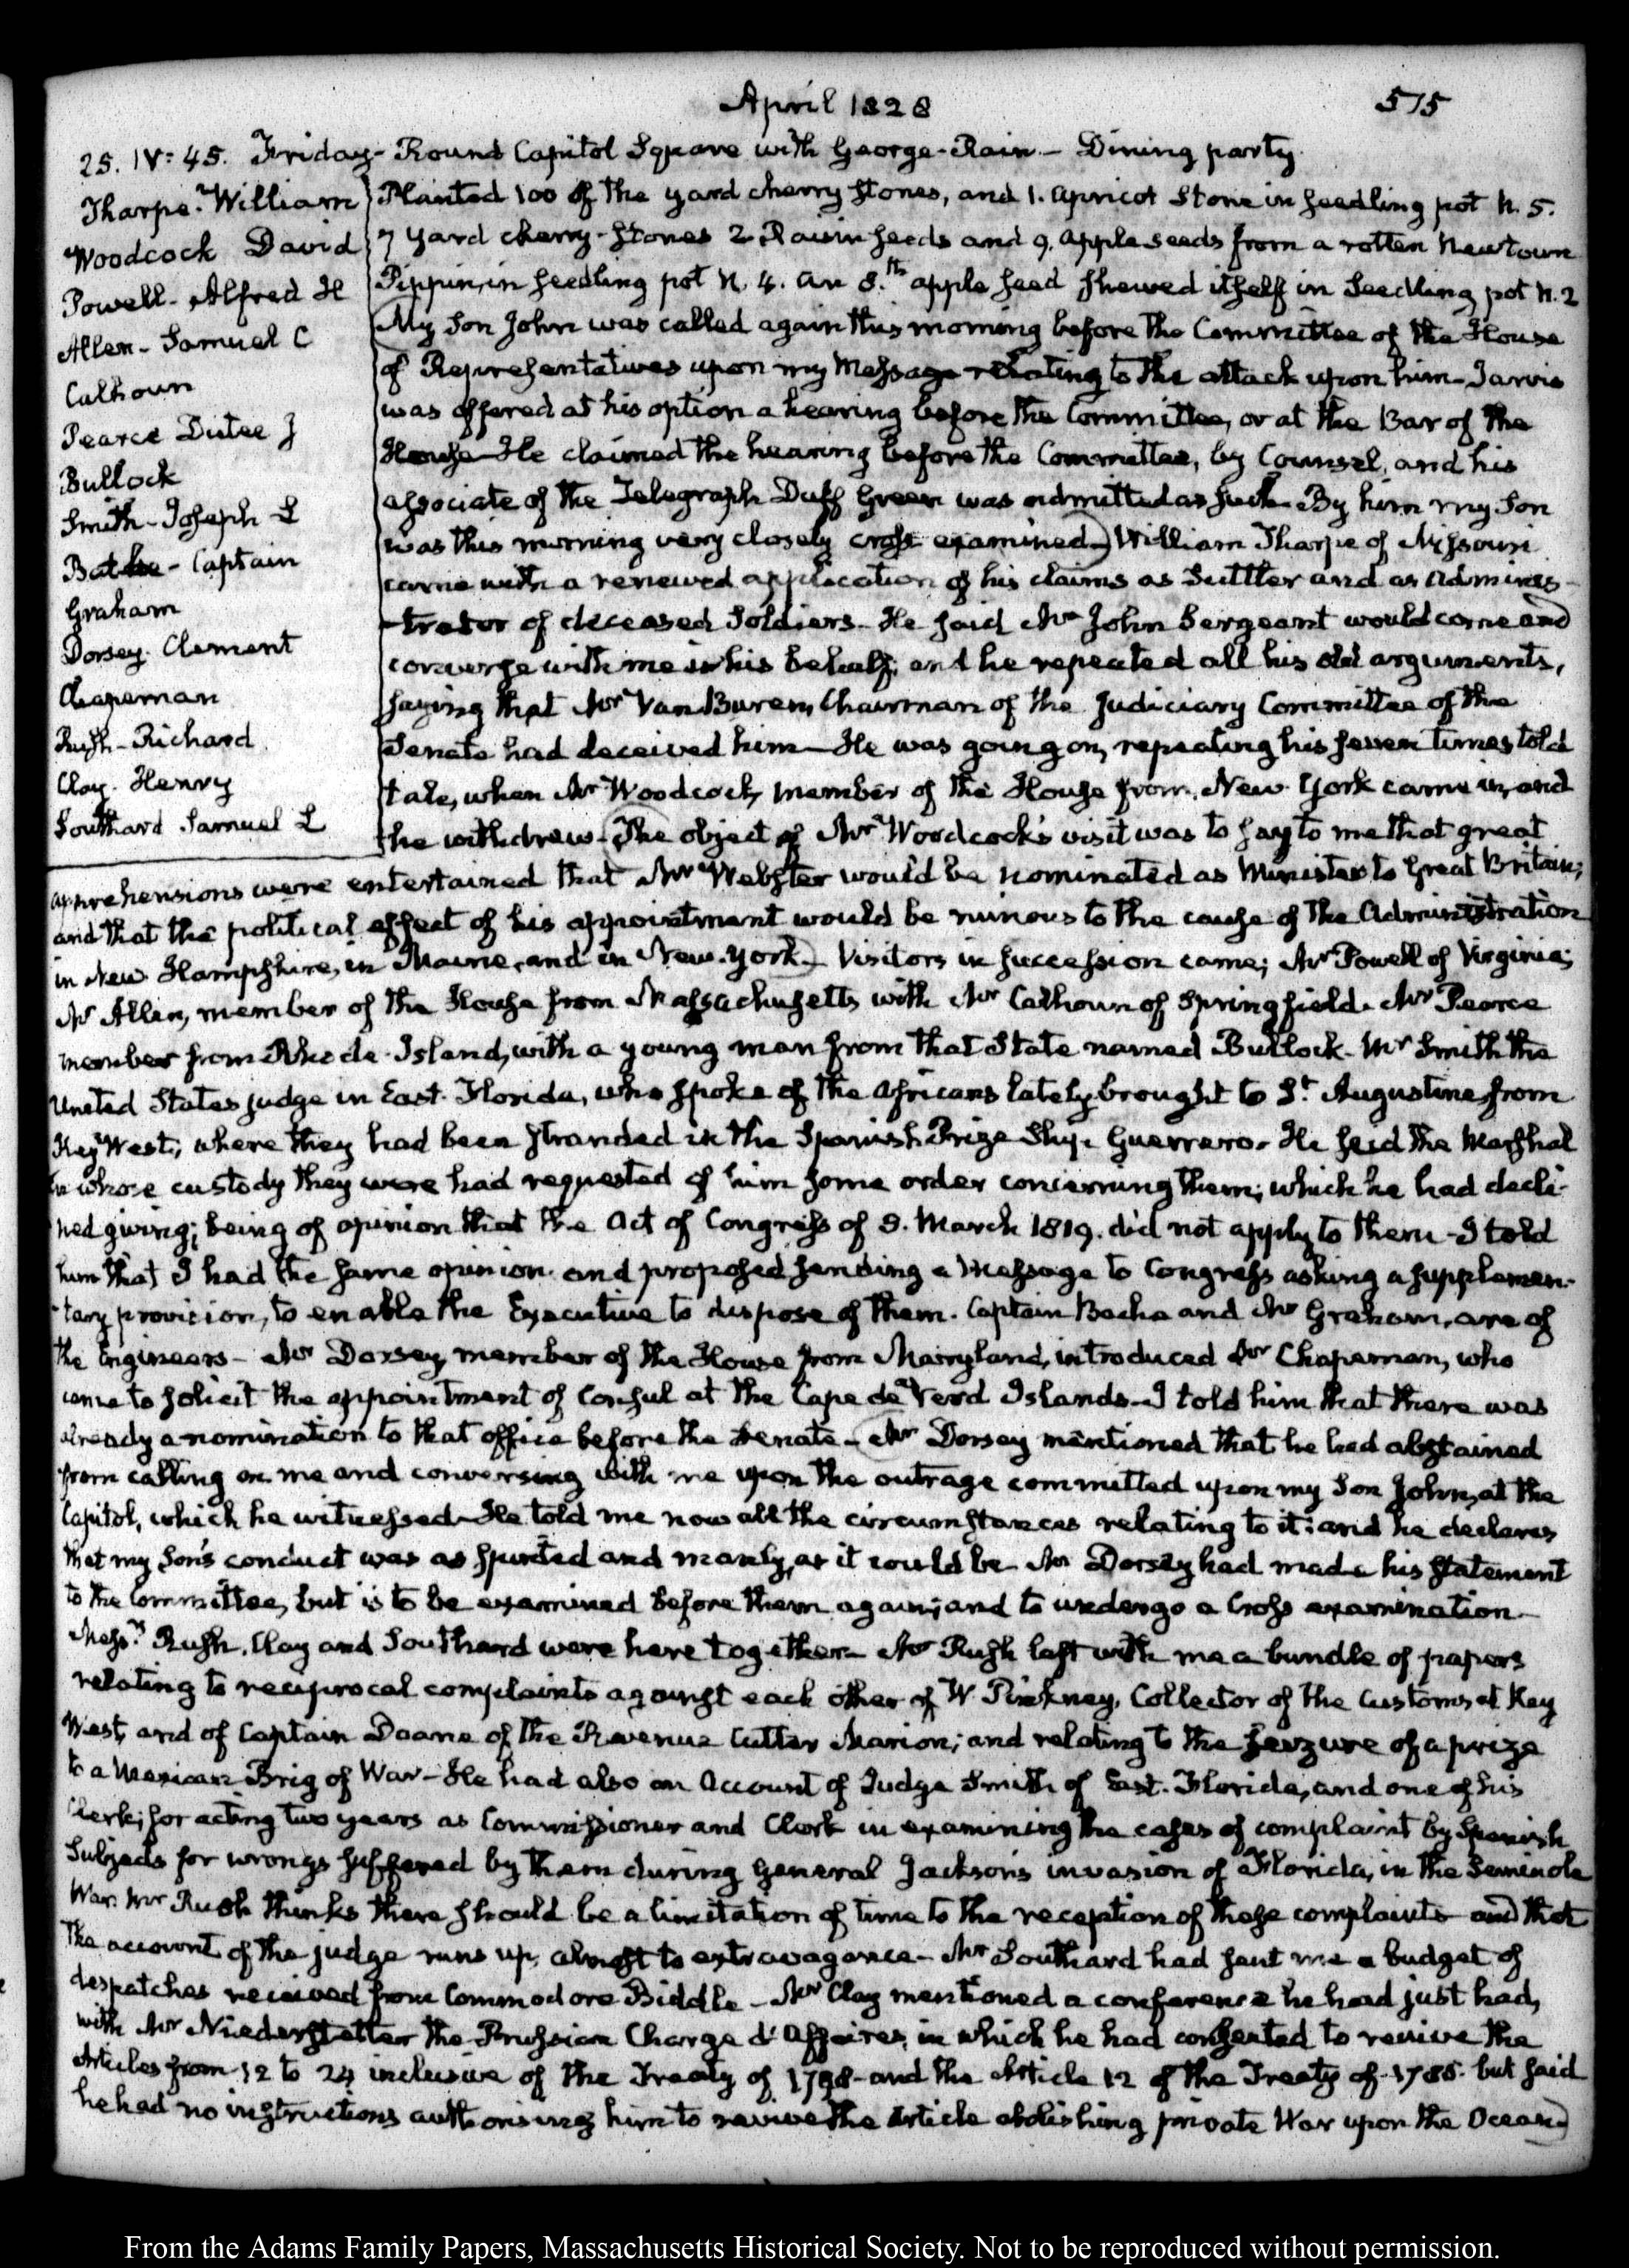 April 1828
575
25. IV: 45. Friday - Round Capitol Square with George - Rain - Dining party.
Tharpe. William
Woodcock David
Powell - Alfred H
Allen - Samuel C
Calhoun
Pearce Dutee J
Bullock
Smith - Joseph L
Bache - Captain
Graham
Dorsey. Clement
Chapeman
Rush - Richard
Clay. Henry
Southard Samuel L
Planted 100 of the yard cherry stones, and 1. apricot stone in seedling pot N. 5.
7 yard cherry-stones 2 Raisin seeds and 9. apple seeds from a rotten Newtown
Pippin, in seedling pot N. 4. An 8.th apple seed shewed itself in Seedling pot N. 2
My Son John was called again this morning before the Committee of the House
of Representatives upon my Message relating to the attack upon him - Jarvis
was offered at his option a hearing before the Committee, or at the Bar of the
House - He claimed the hearing before the Committee, by Counsel, and his
associate of the Telegraph Duff Green was admitted as such - By him my Son
was this morning very closely cross examined - William Tharpe of Missouri
came with a renewed application of his claims as Suttler and as adminis-
-trator of deceased Soldiers - He said Mr John Sergeant would come and
converse with me in his behalf; and he repeated all his old arguments,
saying that Mr Van Buren, Chairman of the Judiciary Committee of the
Senate had deceived him - He was going on, repeating his seven times told
tale, when Mr Woodcock, member of the House from New-York came in, and
he withdrew - The object of Mr Woodcock's visit was to say to me that great
apprehensions were entertained that Mr Webster would be nominated as Minister to Great Britain;
and that the political effect of his appointment would be ruinous to the cause of the Administration
in New Hampshire, in Maine, and in New-York - Visitors in succession came; Mr Powell of Virginia;
Mr Allen, member of the House from Massachusetts with Mr Calhoun of Springfield. Mr Pearce
member from Rhode-Island, with a young man from that State named Bullock - Mr Smith the
United States judge in East-Florida, who spoke of the Africans lately brought to St. Augustine from
Key West, where they had been stranded in the Spanish Prize Ship Guerrero. He said the Marshal
in whose custody they were had requested of him some order concerning them; which he had decli-
ned giving; being of opinion that the Act of Congress of 3. March 1819. did not apply to them - I told
him that I had the same opinion and proposed sending a Message to Congress asking a supplemen-
-tary provision, to enable the Executive to dispose of them. Captain Bache and Mr Graham, are of
the Engineers - Mr Dorsey, member of the House from Maryland, introduced Mr Chapeman, who
came to solicit the appointment of Consul at the Cape de Verd Islands - I told him that there was
already a nomination to that office before the Senate - Mr Dorsey mentioned that he had abstained
from calling on me and conversing with me upon the outrage committed upon my Son John, at the
Capitol, which he witnessed - He told me now all the circumstances relating to it: and he declares
that my Son's conduct was as spirited and manly, as it could be Mr Dorsey had made his statement
to the Committee, but is to be examined before them again; and to undergo a Cross examination -
Messrs Rush, Clay and Southard were here together - Mr Rush left with me a bundle of papers
relating to reciprocal complaints against each other of W. Pinkney, Collector of the Customs at Key
West, and of Captain Doane of the Revenue Cutter Marion; and relating to the seizure of a prize
to a Mexican Brig of War - He had also an Account of Judge Smith of East-Florida, and one of his
Clerk; for acting two years as Commissioner and Clerk in examining the cases of complaint by Spanish
Subjects for wrongs suffered by them during General Jackson's invasion of Florida, in the Seminole
War. Mr Rush thinks there should be a limitation of time to the reception of these complaints and that
the account of the judge runs up, almost to extravagance - Mr Southard had sent me a budget of
despatches received from Commodore Biddle - Mr Clay mentioned a conference he had just had,
with Mr Niederstetter the Prussian Charge d'Affaires, in which he had consented to revive the
Articles from 12 to 24 inclusive of the Treaty of 1798 - and the Article 12 of the Treaty of 1785. but said
he had no instructions authorising him to revive the Article abolishing private War upon the Ocean
From the Adams Family Papers, Massachusetts Historical Society. Not to be reproduced without permission.